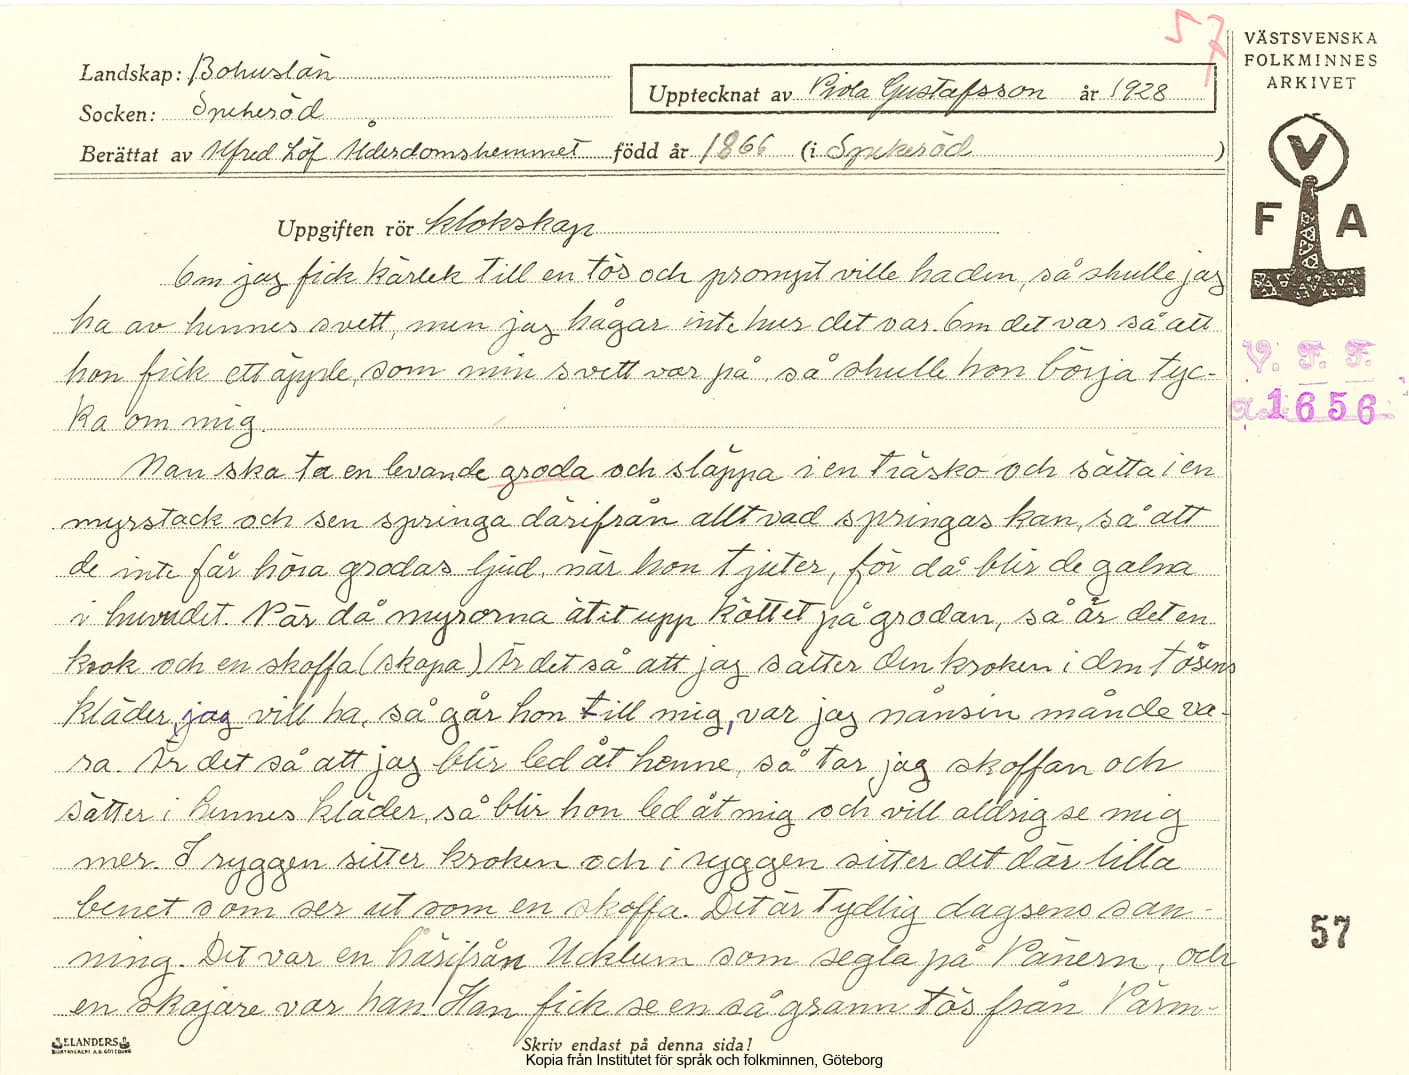 57
VÄSTSVENSKA
FOLKMINNES
ARKIVET
Landskap: Bohuslän
Socken: Spekeröd
Upptecknat av Viola Gustafsson år 1928
Berättat av Alfred Löf Ålderdomshemmet född år 1866 (i Spekeröd )
V
F A
Uppgiften rör klokskap
Om jag fick kärlek till en tös och prompt ville ha den, så skulle jag
ha av hennes svett, men jag hågar inte hur det var. Om det var så att
hon fick ett äpple, som min svett var på, så skulle hon börja tyc-
ka om mig.
V. F. F.
1656
Man ska ta en levande groda och släppa i en träsko och sätta i en
myrstack och sen springa därifrån allt vad springas kan, så att
de inte får höra grodas ljud, när hon tjuter, för då blir de galna
i huvudet. När då myrorna ätit upp köttet på grodan, så är det en
krok och en skoffa (skopa) Är det så att jag sätter den kroken i den tösens
kläder, jag vill ha, så går hon till mig, var jag nånsin månde va-
ra. Är det så att jag blir led åt henne, så tar jag skoffan och
sätter i hennes kläder, så blir hon led åt mig och vill aldrig se mig
mer. I ryggen sitter kroken och i ryggen sitter det där lilla
benet som ser ut som en skoffa. Det är tydlig dagsens san-
ning. Det var en härifrån Ucklum som segla på Vänern, och
en skojare var han. Han fick se en så grann tös från Värm-
57
ELANDERS
BOKTRYCKERI A.B. GÖTEBORG
Skriv endast på denna sida!
Kopia från Institutet för språk och folkminnen, Göteborg